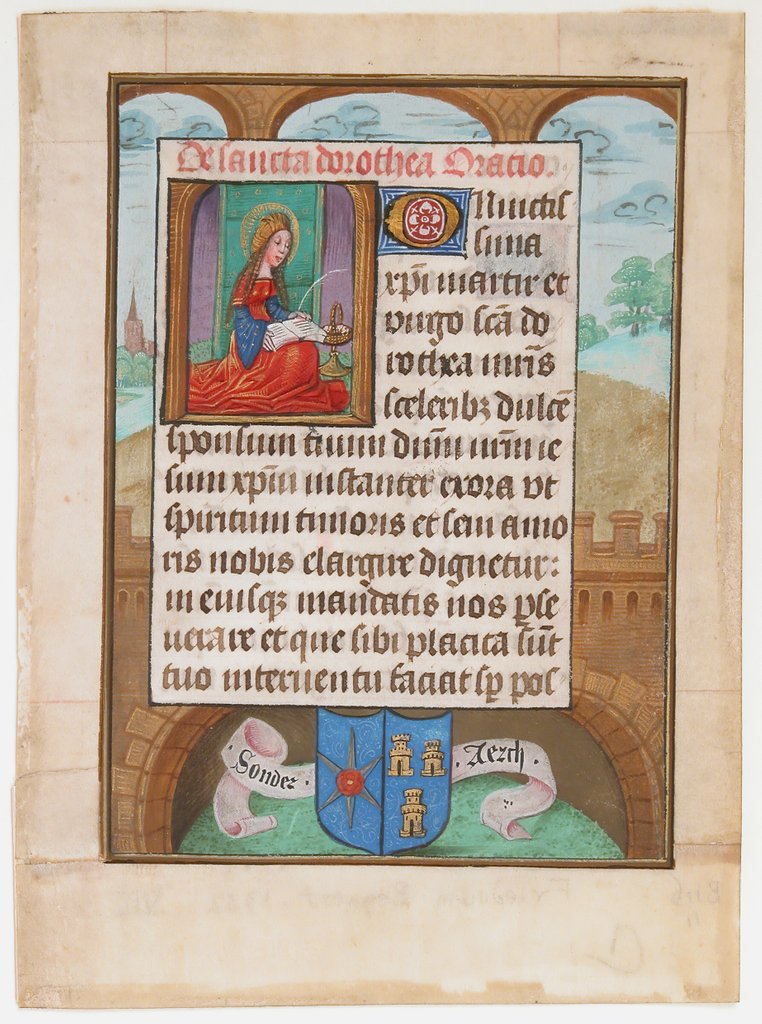 De sancta dorothea Oratio.
O Invictis
sima
xp̄i martir et
virgo sc̄a do
rothea nr̄is
sceleribꝫ dulcē
sponsum tuum dn̄m nr̄m ie
sum xp̄m instanter exora vt
spiritum timoris et sem amo
ris nobis elargire dignetur:
in eiusqꝫ mandatis nos ꝑse
uerare et que sibi placita sūt
tuo interuentu faciat sꝑ pos
·Sonder·
·Aerch·